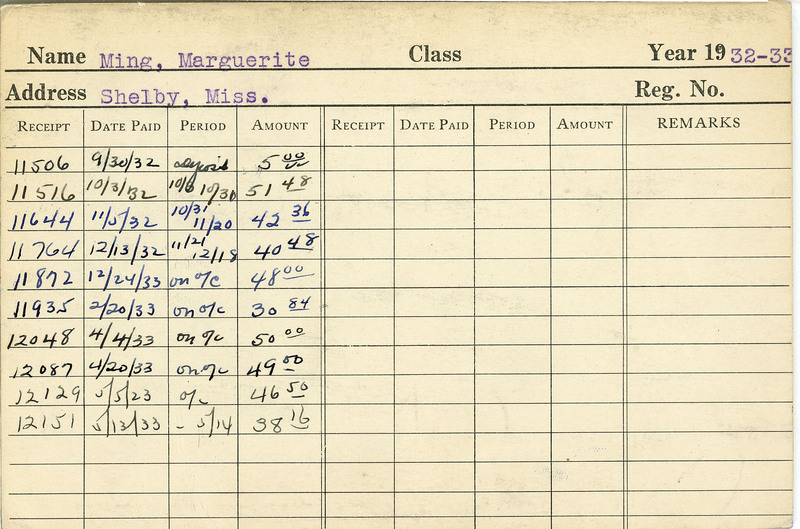 Name Ming, Marguerite Class Year 1932-33
Address Shelby, Miss. Reg. No.
RECEIPT DATE PAID PERIOD AMOUNT RECEIPT DATE PAID PERIOD AMOUNT REMARKS
11506 9/30/32 deposit 5 00
11516 10/3/32 10/6 10/30 51 48
11644 11/5/32 10/31 11/20 42 36
11764 12/13/32 11/21 12/18 40 48
11872 12/24/33 on %c 48 00
11935 2/20/33 on %c 30 84
12048 4/4/33 on %c 50 00
12087 4/20/33 on %c 49 00
12129 5/5/23 %c 46 50
12151 5/13/33 - 5/14 38 16